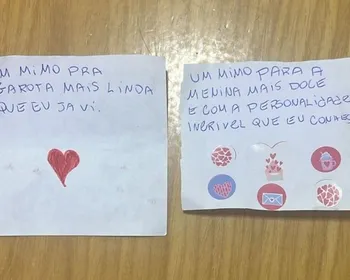 UM MIMO PRA
GAROTA MAIS LINDA
QUE EU JA VI.
UM MIMO PARA A
MENINA MAIS DOCE
E COM A PERSONALIDADE
INCRIVEL QUE EU